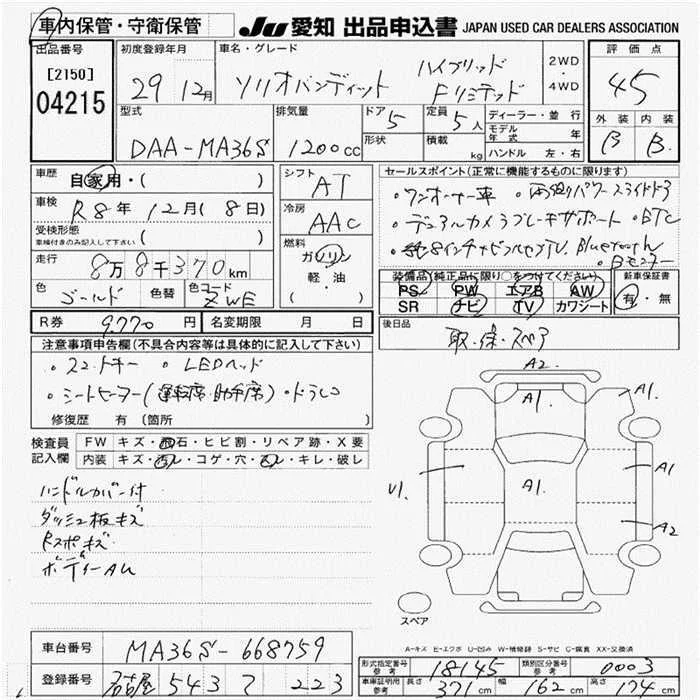 車内保管・守衛保管 JU 愛知 出品申込書 JAPAN USED CAR DEALERS ASSOCIATION
出品番号 初度登録年月 車名・グレード 評価点
[2150] 29 12月 ソリオバンディット ハイブリッド Fリミテッド 2WD・4WD 45
04215
型式 排気量 ドア 5 定員 5人 ディーラー・並行 外装 内装
DAA-MA36S 1200cc 形状 積載 kg モデル年式 年 B B
ハンドル 左・右
車歴 自家用・( ) シフト AT セールスポイント(正常に機能するものに限ります)
車検 R8年 12月 (8日) 冷房 AAC ・ワンオーナー車 ・両側パワースライドドア
受検形態 車検付きのみ記入して下さい ( ) ・デュアルカメラブレーキサポート ・ETC
走行 8万8千370km 燃料 ガソリン 軽・油 ( ) ・純8インチナビフルセグTV. Bluetooth
・Bモニター
色 ゴールド 色替 色コード ZWE 装備品(純正品に限り○をつけてください) 新車保証書
PS PW エアB AW 有・無
SR ナビ TV カワシート
R券 9,770円 名変期限 月 日 後日品 取・保・スペア
注意事項申告欄(不具合内容等は具体的に記入して下さい)
・スマートキー ・LEDヘッド
・シートヒーター(運転席・助手席) ・ドラレコ
修復歴 有 (箇所 )
検査員記入欄 FW キズ・飛石・ヒビ割・リペア跡・X要
内装 キズ・汚レ・コゲ・穴・スレ・キレ・破レ
ハンドルカバー付
ダッシュ板キズ
Rスポキズ
ボディーAU
A2
A1
A1.
U1.
A1.
A1
A2
スペア
A-キズ E-エクボ U-凹み W-補修跡 S-サビ C-腐食 XX-交換済
車台番号 MA36S-668759 形式指定番号 参考 18145 類別区分番号 参考 0003
登録番号 名古屋 543 て 223 車車証明用 参考 長さ 371cm 幅 162cm 高さ 174cm